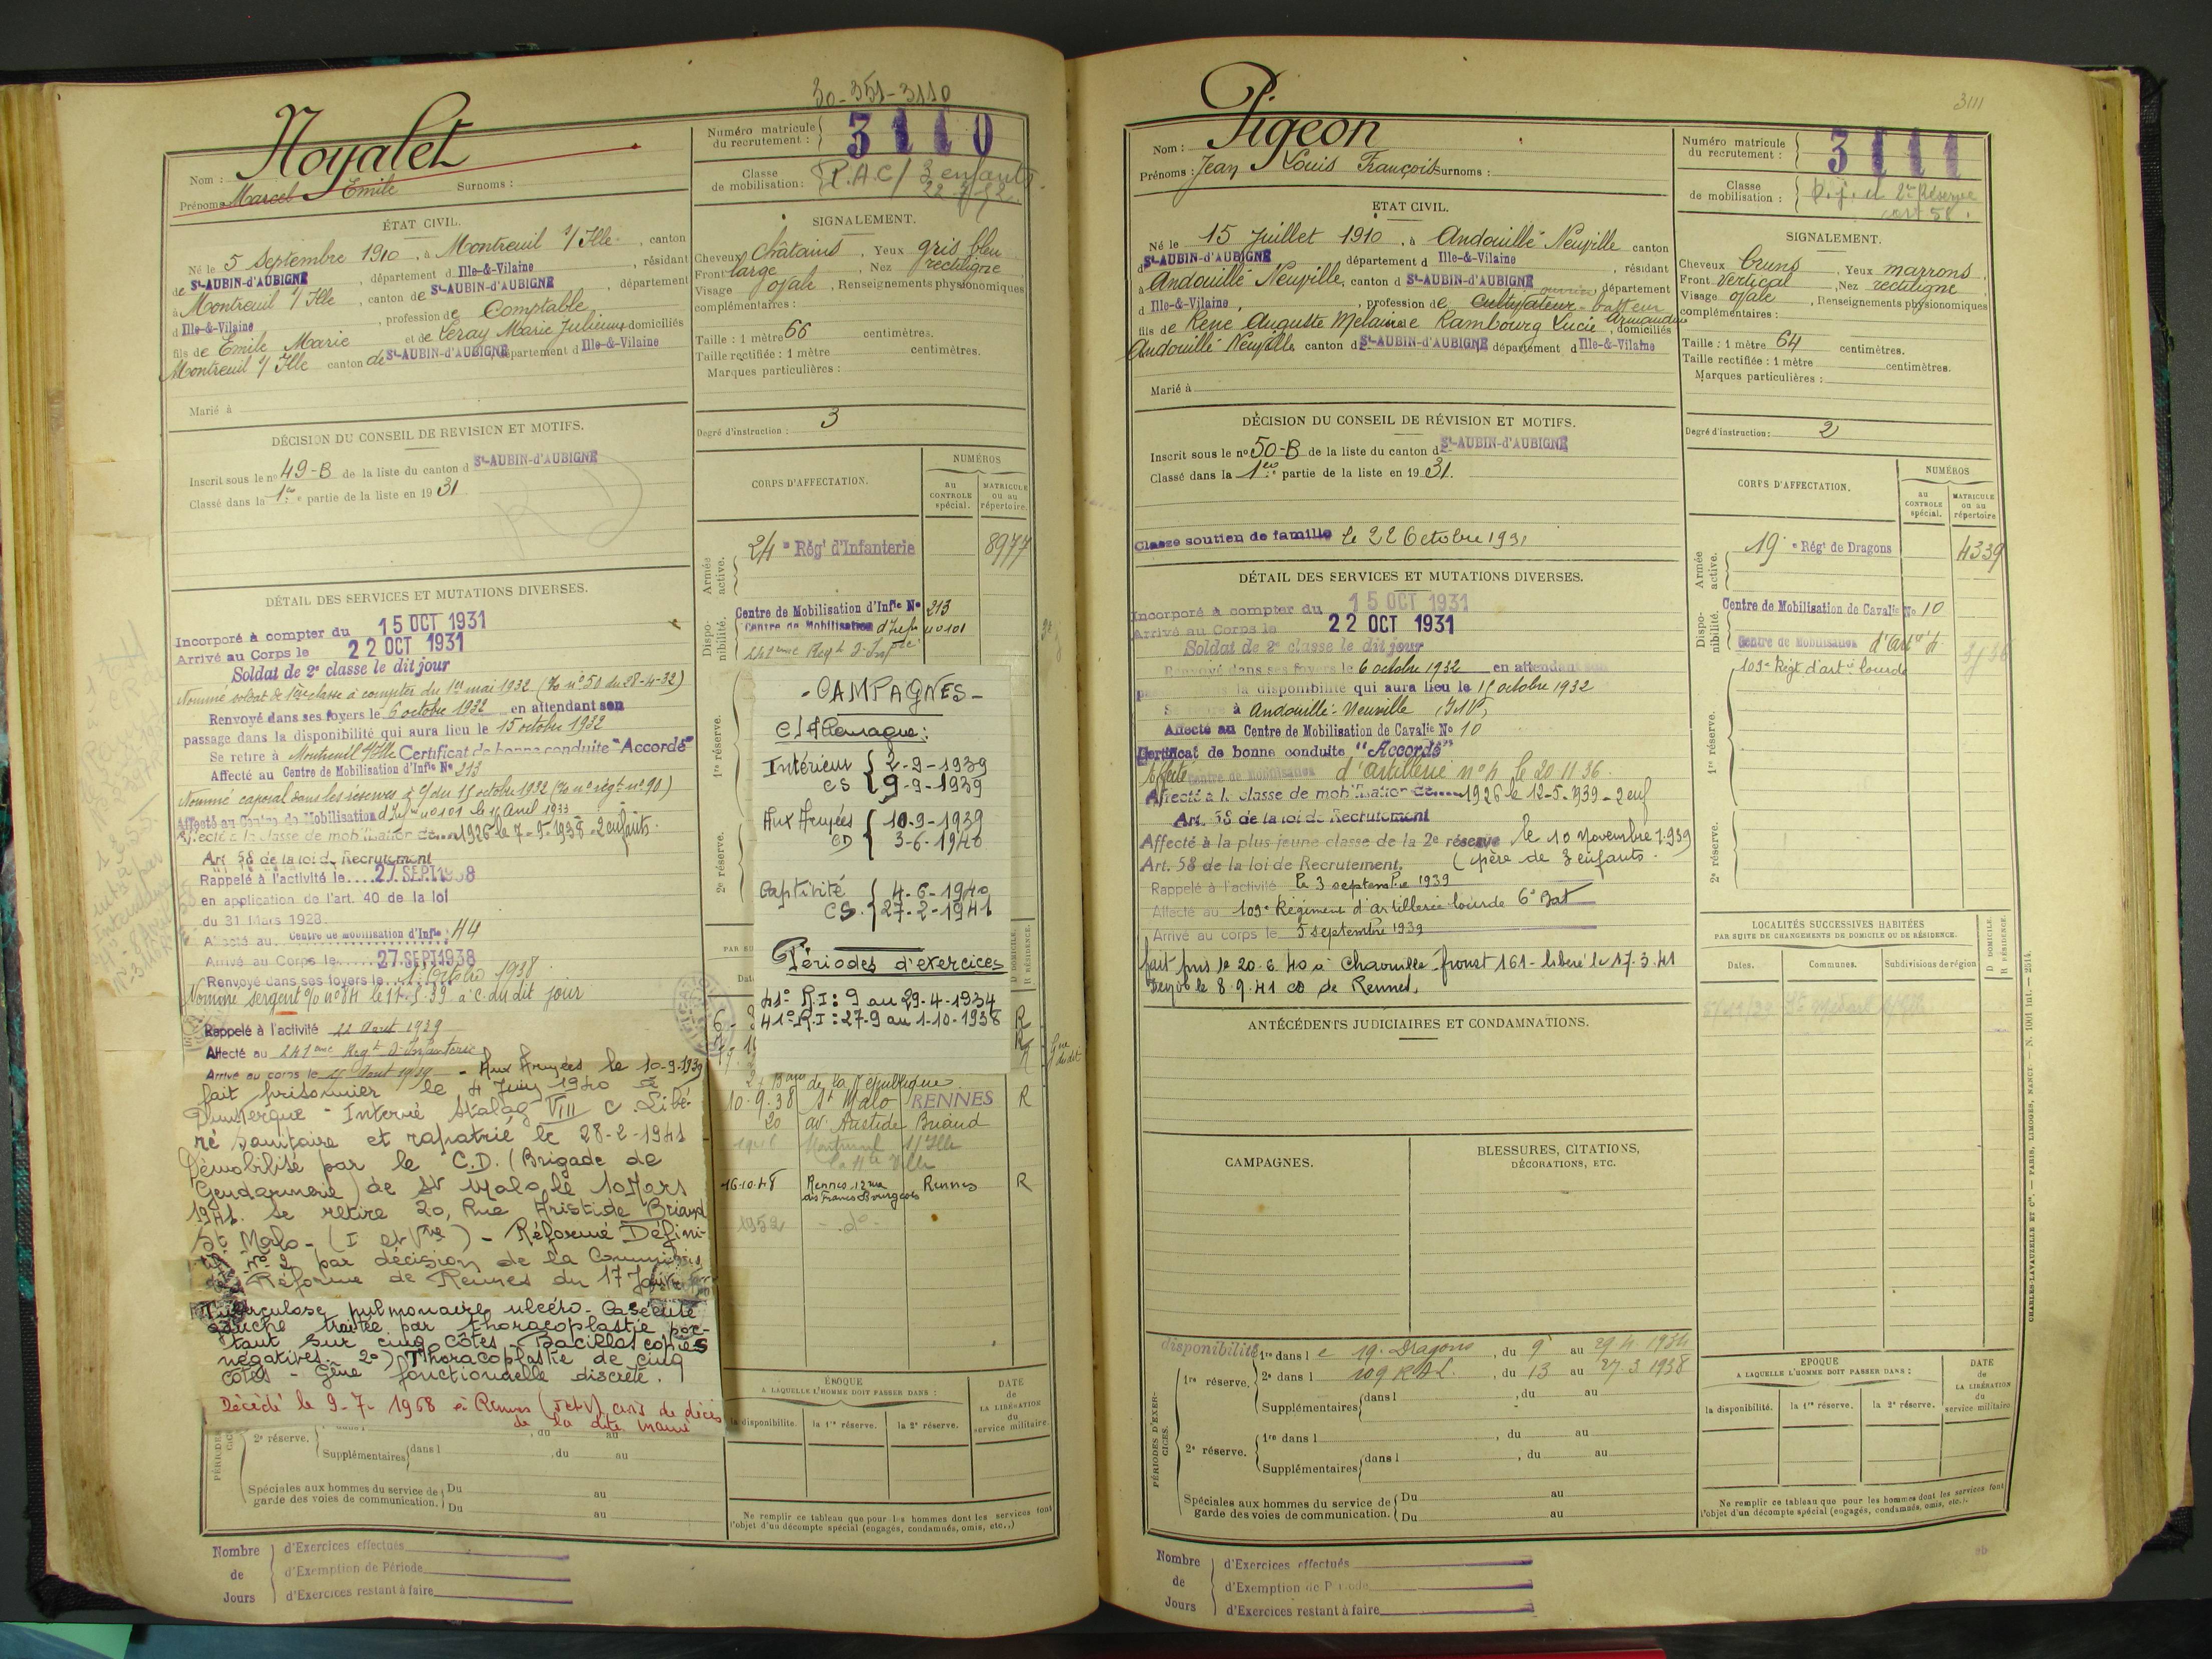 30-351-3110
Noyalet
Nom :
Prénoms Marcel Emile Surnoms :
Numéro matricule du recrutement : 3110
Classe de mobilisation : P.A.C / 3 enfants
ÉTAT CIVIL.
Né le 5 Septembre 1910, à Montreuil s/ Ille, canton
de St-AUBIN-d'AUBIGNÉ, département d Ille-&-Vilaine, résidant
à Montreuil s/ Ille, canton de St-AUBIN-d'AUBIGNÉ, département
d Ille-&-Vilaine, profession de Comptable
fils de Emile Marie et de Leray Marie Julienne domiciliés
Montreuil s/ Ille canton de St-AUBIN-d'AUBIGNÉ département d Ille-&-Vilaine
Marié à
SIGNALEMENT.
Cheveux Châtains, Yeux gris bleu
Front large, Nez rectiligne
Visage ovale, Renseignements physionomiques
complémentaires :
Taille : 1 mètre 66 centimètres.
Taille rectifiée : 1 mètre centimètres.
Marques particulières :
Degré d'instruction : 3
DÉCISION DU CONSEIL DE REVISION ET MOTIFS.
Inscrit sous le nº 49-B de la liste du canton d St-AUBIN-d'AUBIGNÉ
Classé dans la 1re partie de la liste en 1931
CORPS D'AFFECTATION.
NUMÉROS
au CONTROLE spécial.
MATRICULE ou au répertoire.
Armée active.
24e Régt d'Infanterie 8977
Disponibilité.
Centre de Mobilisation d'Infie Nº 213
Centre de Mobilisation d'Infie nº 101
241eme Regt d'Infie
1re réserve.
2e réserve.
DÉTAIL DES SERVICES ET MUTATIONS DIVERSES.
Incorporé à compter du 15 OCT 1931
Arrivé au Corps le 22 OCT 1931
Soldat de 2e classe le dit jour
Nommé soldat de 1ère classe à compter du 1er mai 1932 (% nº 50 du 28-4-32)
Renvoyé dans ses foyers le 6 octobre 1932 en attendant son
passage dans la disponibilité qui aura lieu le 15 octobre 1932
Se retire à Montreuil s/Ille Certificat de bonne conduite "Accordé"
Affecté au Centre de Mobilisation d'Infie Nº 213
Nommé caporal dans les réserves à c/ du 15 octobre 1932 (% nº régt nº 90)
Affecté au Centre de Mobilisation d'Infie nº 101 le 15 Avril 1933
Affecté à la classe de mobilisation de 1926 le 7-5-1938 - 2 enfants.
Art. 58 de la loi de Recrutement
Rappelé à l'activité le 27 SEPT 1938
en application de l'art. 40 de la loi
du 31 Mars 1928.
Affecté au Centre de mobilisation d'Infie 44
Arrivé au Corps le 27 SEPT 1938
Renvoyé dans ses foyers le 1er Octobre 1938
Nommé sergent % nº 84 le 11-5-39 à c. du dit jour
Rappelé à l'activité 22 Aout 1939
Affecté au 241eme Regt d'Infanterie
Arrivé au corps le 25 Aout 1939 - Aux Armées le 10-9-1939
fait prisonnier le 4 Juin 1940 à
Dunkerque - Interné Stalag VIII C. Libé-
ré sanitaire et rapatrié le 28-2-1941
Démobilisé par le C.D. (Brigade de
Gendarmerie) de St Malo le 10 Mars
1941. Se retire 20, Rue Aristide Briand
St Malo - (I et Vne) - Réformé Défini-
tif nº 2 par décision de la Commission
de Réforme de Rennes du 17
Tuberculose pulmonaire ulcéro-caséeuse
gauche traitée par thoracoplastie por-
tant sur cinq côtes. Bacilloscopies
négatives. 2º) Thoracoplastie de cinq
côtes - Gêne fonctionnelle discrète.
Décédé le 9-7-1968 à Rennes (I et V) avis de décès
de la dite mairie
- CAMPAGNES -
C/ Allemagne :
Intérieur { 2-9-1939
CS { 9-9-1939
Aux Armées { 10-9-1939
CD { 3-6-1940
Captivité { 4-6-1940
CS. { 27-2-1941
Périodes d'exercices
41º R.I : 9 au 29-4-1934
41º R.I : 27-9 au 1-10-1938
27 Bard de la République
10-9-38 St Malo RENNES R
20 av. Aristide Briand
Montreuil s/Ille
16-10-48 Rennes 12 rue des Francs Bourgeois Rennes R
1952 - do -
ÉPOQUE
A LAQUELLE L'HOMME DOIT PASSER DANS :
la disponibilité. la 1re réserve. la 2e réserve.
DATE de LA LIBÉRATION du service militaire.
2e réserve.
Supplémentaires dans l , du au
Spéciales aux hommes du service de garde des voies de communication. Du au
Du au
Ne remplir ce tableau que pour les hommes dont les services font
l'objet d'un décompte spécial (engagés, condamnés, omis, etc..)
Nombre de Jours
d'Exercices effectués
d'Exemption de Période
d'Exercices restant à faire
3111
Pigeon
Nom :
Prénoms : Jean Louis François Surnoms :
Numéro matricule du recrutement : 3111
Classe de mobilisation : p. j. cl 2me Réserve
art 58.
ETAT CIVIL.
Né le 15 Juillet 1910, à Andouillé-Neuville canton
d St-AUBIN-d'AUBIGNÉ département d Ille-&-Vilaine, résidant
à Andouillé Neuville, canton d St-AUBIN-d'AUBIGNÉ département
d Ille-&-Vilaine, profession de cultivateur ouvrier batteur
fils de René Auguste Melaine et de Rambourg Lucie Armandine, domiciliés
Andouillé Neuville canton d St-AUBIN-d'AUBIGNÉ département d Ille-&-Vilaine
Marié à
SIGNALEMENT.
Cheveux bruns, Yeux marrons
Front vertical, Nez rectiligne
Visage ovale, Renseignements physionomiques
complémentaires :
Taille : 1 mètre 64 centimètres.
Taille rectifiée : 1 mètre centimètres.
Marques particulières :
Degré d'instruction : 2
DÉCISION DU CONSEIL DE RÉVISION ET MOTIFS.
Inscrit sous le nº 50-B de la liste du canton d St-AUBIN-d'AUBIGNÉ
Classé dans la 1re partie de la liste en 1931.
Classé soutien de famille le 22 Octobre 1931
CORPS D'AFFECTATION.
NUMÉROS
au CONTROLE spécial.
MATRICULE ou au répertoire
Armée active.
19e Régt de Dragons 4339
Disponibilité.
Centre de Mobilisation de Cavalie Nº 10
Centre de Mobilisation d'artie 4
109e Régt d'artie lourde
1re réserve.
2e réserve.
DÉTAIL DES SERVICES ET MUTATIONS DIVERSES.
Incorporé à compter du 15 OCT 1931
Arrivé au Corps le 22 OCT 1931
Soldat de 2e classe le dit jour
Renvoyé dans ses foyers le 6 octobre 1932 en attendant son
passage dans la disponibilité qui aura lieu le 15 octobre 1932
Se retire à Andouillé-Neuville (I&V)
Affecté au Centre de Mobilisation de Cavalie Nº 10
Certificat de bonne conduite "Accordé"
Affecté Centre de Mobilisation d'artillerie nº 4 le 20 11 36.
Affecté à la classe de mobilisation de 1926 le 12-5-1939 - 2 enf
Art. 58 de la loi de Recrutement
Affecté à la plus jeune classe de la 2e réserve le 10 Novembre 1939
Art. 58 de la loi de Recrutement. (père de 3 enfants.
Rappelé à l'activité le 3 septembre 1939
Affecté au 109e Régiment d'artillerie lourde 6e Bat
Arrivé au corps le 5 septembre 1939
fait pris le 20.6.40 à Charmille - front 161 - libéré le 17.3.41
Démob le 8.9.41 CD de Rennes.
LOCALITÉS SUCCESSIVES HABITÉES
PAR SUITE DE CHANGEMENTS DE DOMICILE OU DE RÉSIDENCE.
Dates. Communes. Subdivisions de région
D DOMICILE. R RÉSIDENCE.
ANTÉCÉDENTS JUDICIAIRES ET CONDAMNATIONS.
CAMPAGNES.
BLESSURES, CITATIONS,
DÉCORATIONS, ETC.
PÉRIODES D'EXERCICES.
disponibilité
1re réserve.
1re dans le 19e Dragons, du 9 au 29 4 1934
2e dans l 109 RAL., du 13 au 27 3 1938
Supplémentaires dans l , du au
2e réserve.
1re dans l , du au
Supplémentaires dans l , du au
Spéciales aux hommes du service de garde des voies de communication. Du au
Du au
EPOQUE
A LAQUELLE L'HOMME DOIT PASSER DANS :
la disponibilité. la 1re réserve. la 2e réserve.
DATE de LA LIBÉRATION du service militaire
Ne remplir ce tableau que pour les hommes dont les services font
l'objet d'un décompte spécial (engagés, condamnés, omis, etc..).
CHARLES-LAVAUZELLE ET Cie. — PARIS, LIMOGES, NANCY. — N. 1001 int. — 2514.
Nombre de Jours
d'Exercices effectués
d'Exemption de Période
d'Exercices restant à faire